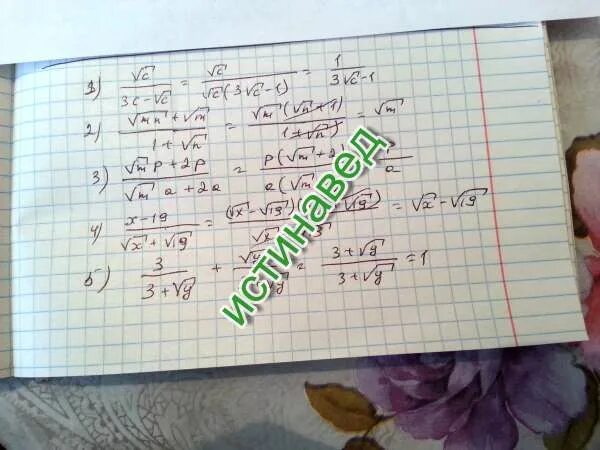 1) √c / (3c - √c) = √c / (√c (3√c - 1)) = 1 / (3√c - 1)
2) (√mn + √m) / (1 + √n) = √m (√n + 1) / (1 + √n) = √m
3) (√m p + 2p) / (√m a + 2a) = p(√m + 2 / a(√m = / a
4) (x - 19) / (√x + √19) = (√x - √19) √19) / √x = √x - √19
5) 3 / (3 + √y) + √y / √y = (3 + √y) / (3 + √y) = 1
истинавед